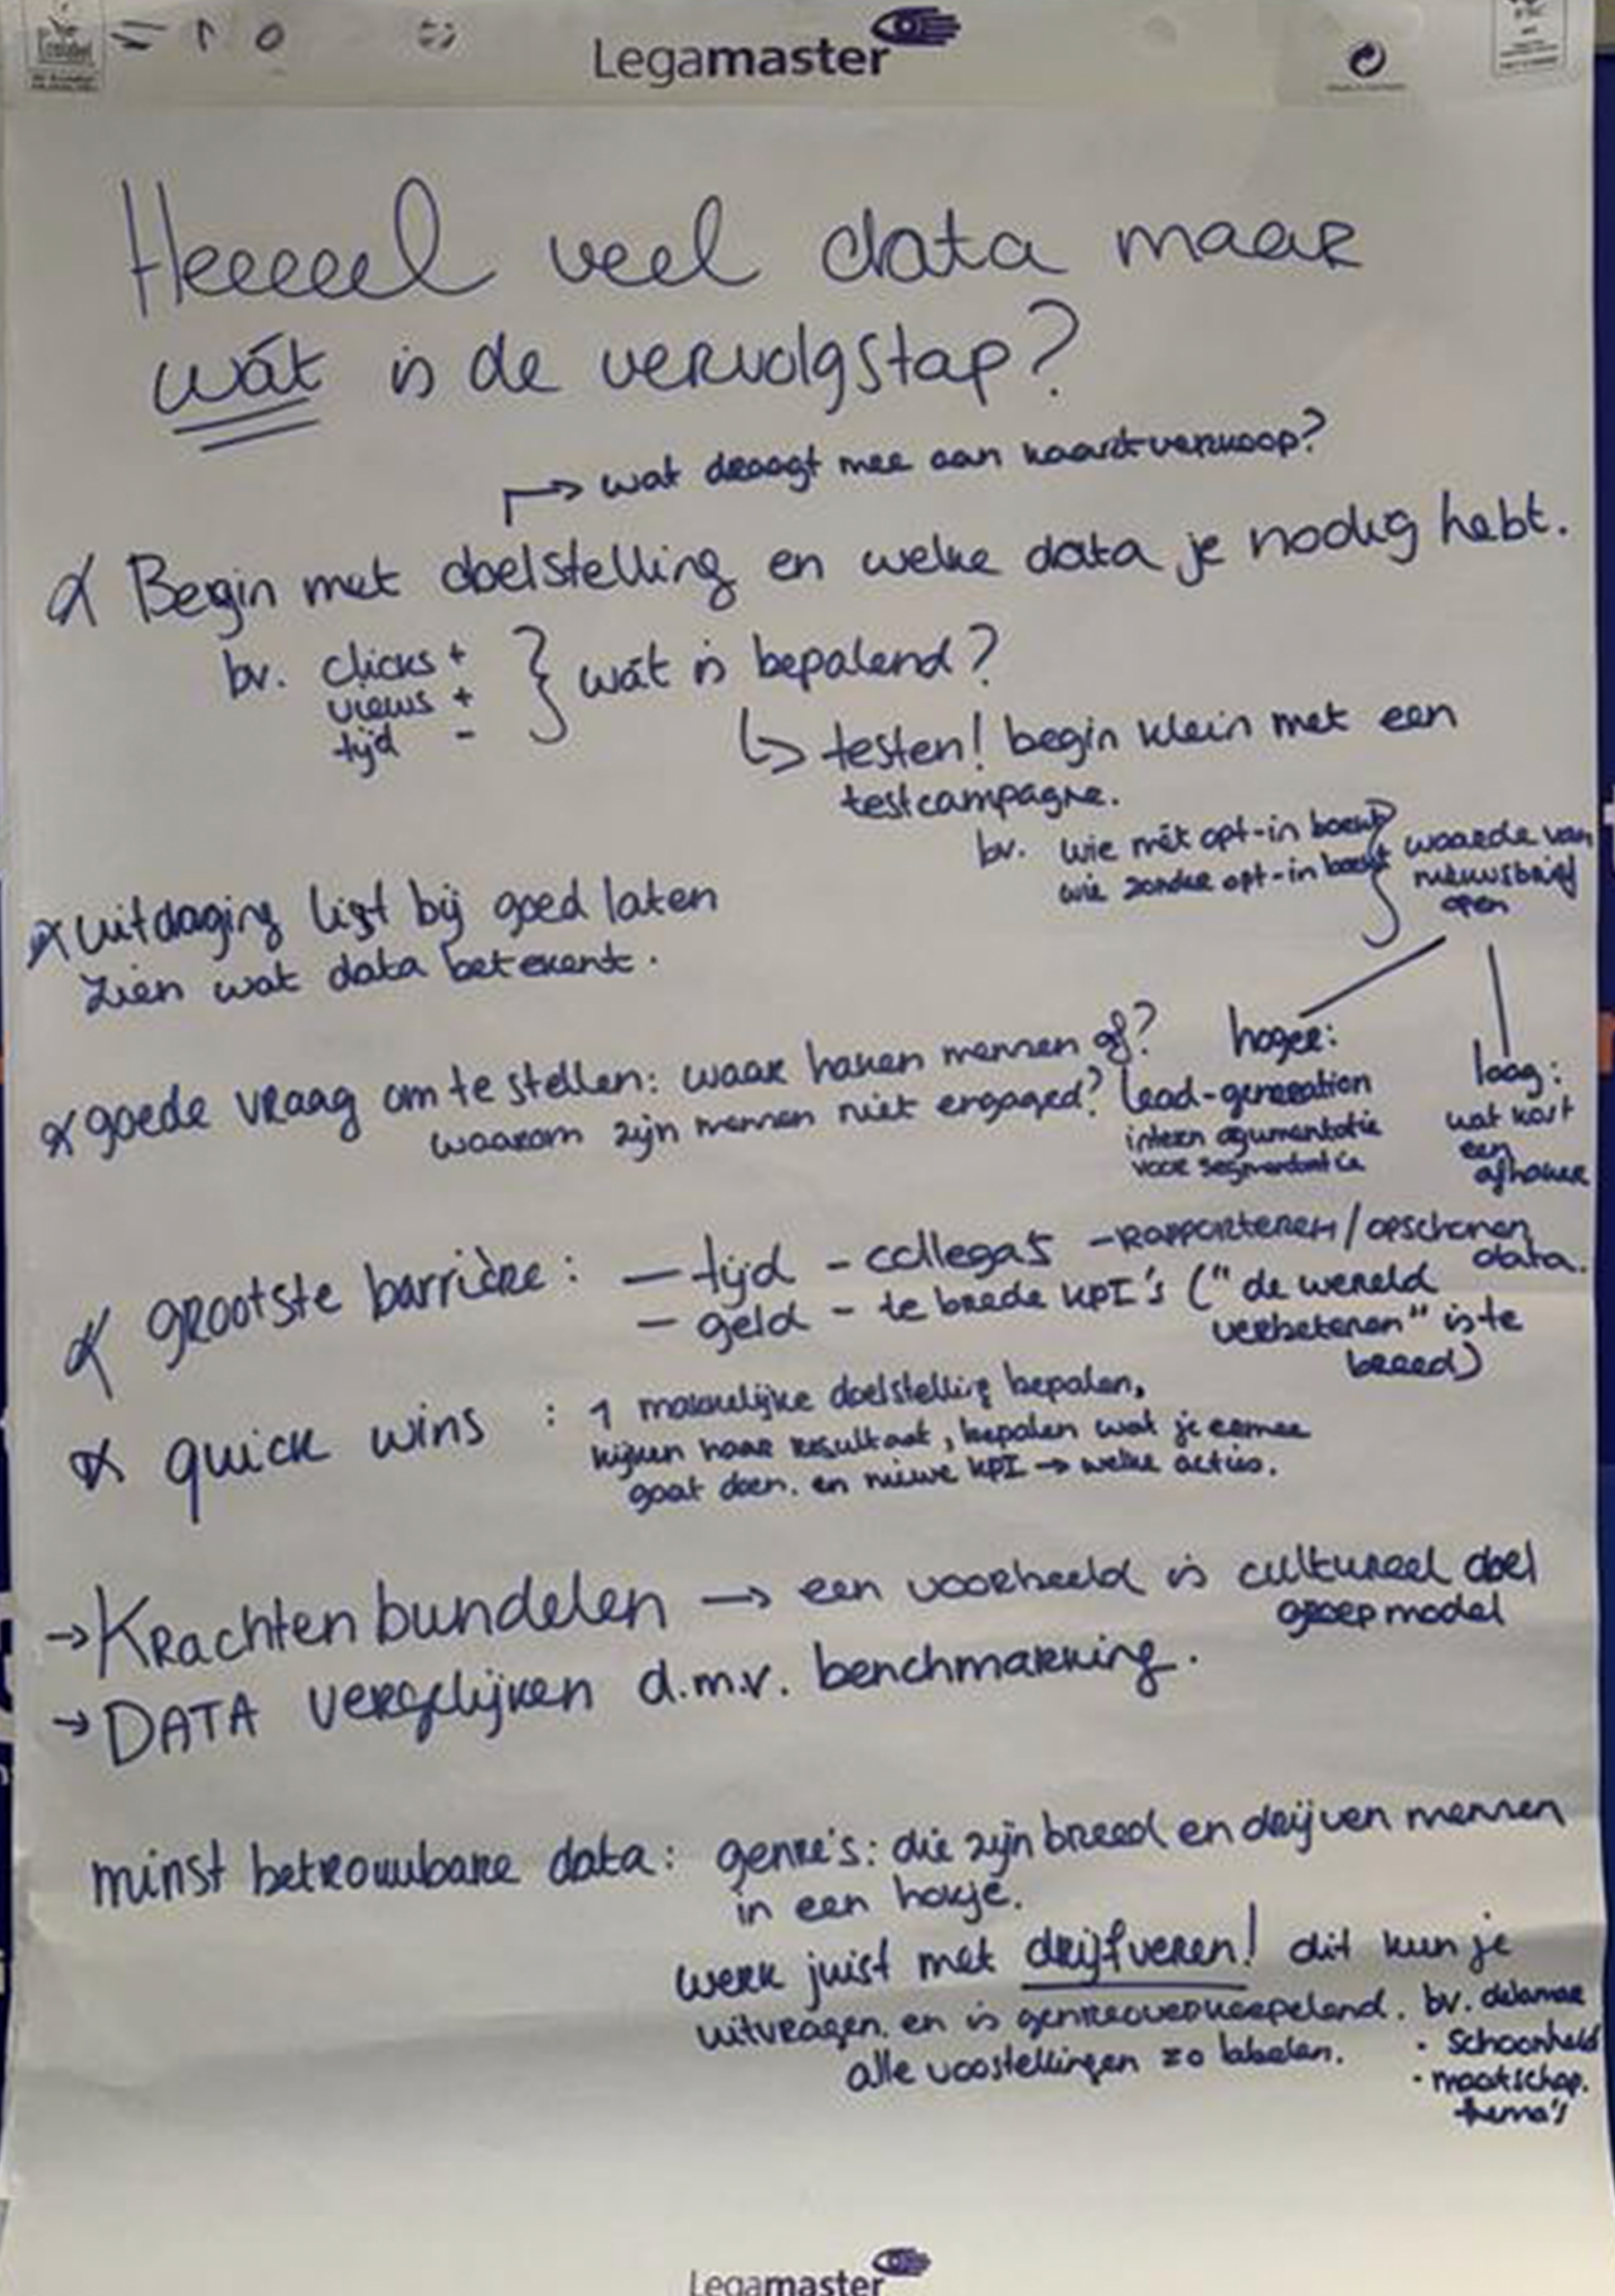 Legamaster
Heeeeel veel data maar
wát is de vervolgstap?
→ wat draagt mee aan kaartverkoop?
Begin met doelstelling en welke data je nodig hebt.
bv. clicks + } wát is bepalend?
views +
tijd -
↳ testen! begin klein met een
testcampagne.
bv. wie mét opt-in boekt } waarde van
wie zonder opt-in boekt nieuwsbrief
open
uitdaging ligt bij goed laten
zien wat data betekent.
goede vraag om te stellen: waar haken mensen af?
waarom zijn mensen niet engaged?
hoger:
lead-generation
intern agumentatie
voor segmentatie
laag:
wat kost
een
afhaker
grootste barrière: — tijd - collegas - rapporteren / opschonen
data.
— geld - te brede KPI's ("de wereld
verbeteren" is te
breed)
quick wins : 1 makkelijke doelstelling bepalen,
kijken naar resultaat, bepalen wat je ermee
gaat doen. en nieuwe KPI → welke acties.
→ Krachten bundelen → een voorbeeld is cultureel doel
groep model
→ DATA vergelijken d.m.v. benchmarking.
minst betrouwbare data: genre's: die zijn breed en drijven mensen
in een hokje.
werk juist met drijfveren! dit kun je
uitvragen. en is genreoverkoepelend. bv. delamar
alle voostellingen zo labelen. · schoonheid
· maatschap.
thema's
Legamaster